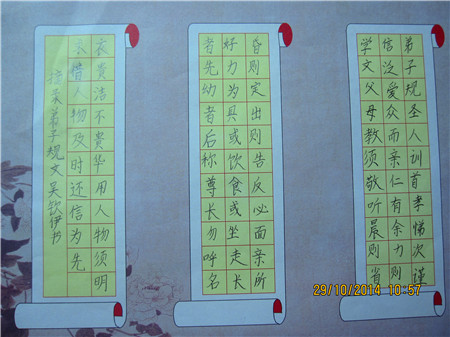 弟子规圣人训首孝悌次谨
信泛爱众而亲仁有余力则
学文父母教须敬听晨则省
昏则定出则告反必面亲所
好力为具或饮食或坐走长
者先幼者后称尊长勿呼名
衣貴洁不貴华用人物须明
求借人物及时还信为先
摘录弟子规文吴饮伊书
29/10/2014 10:57